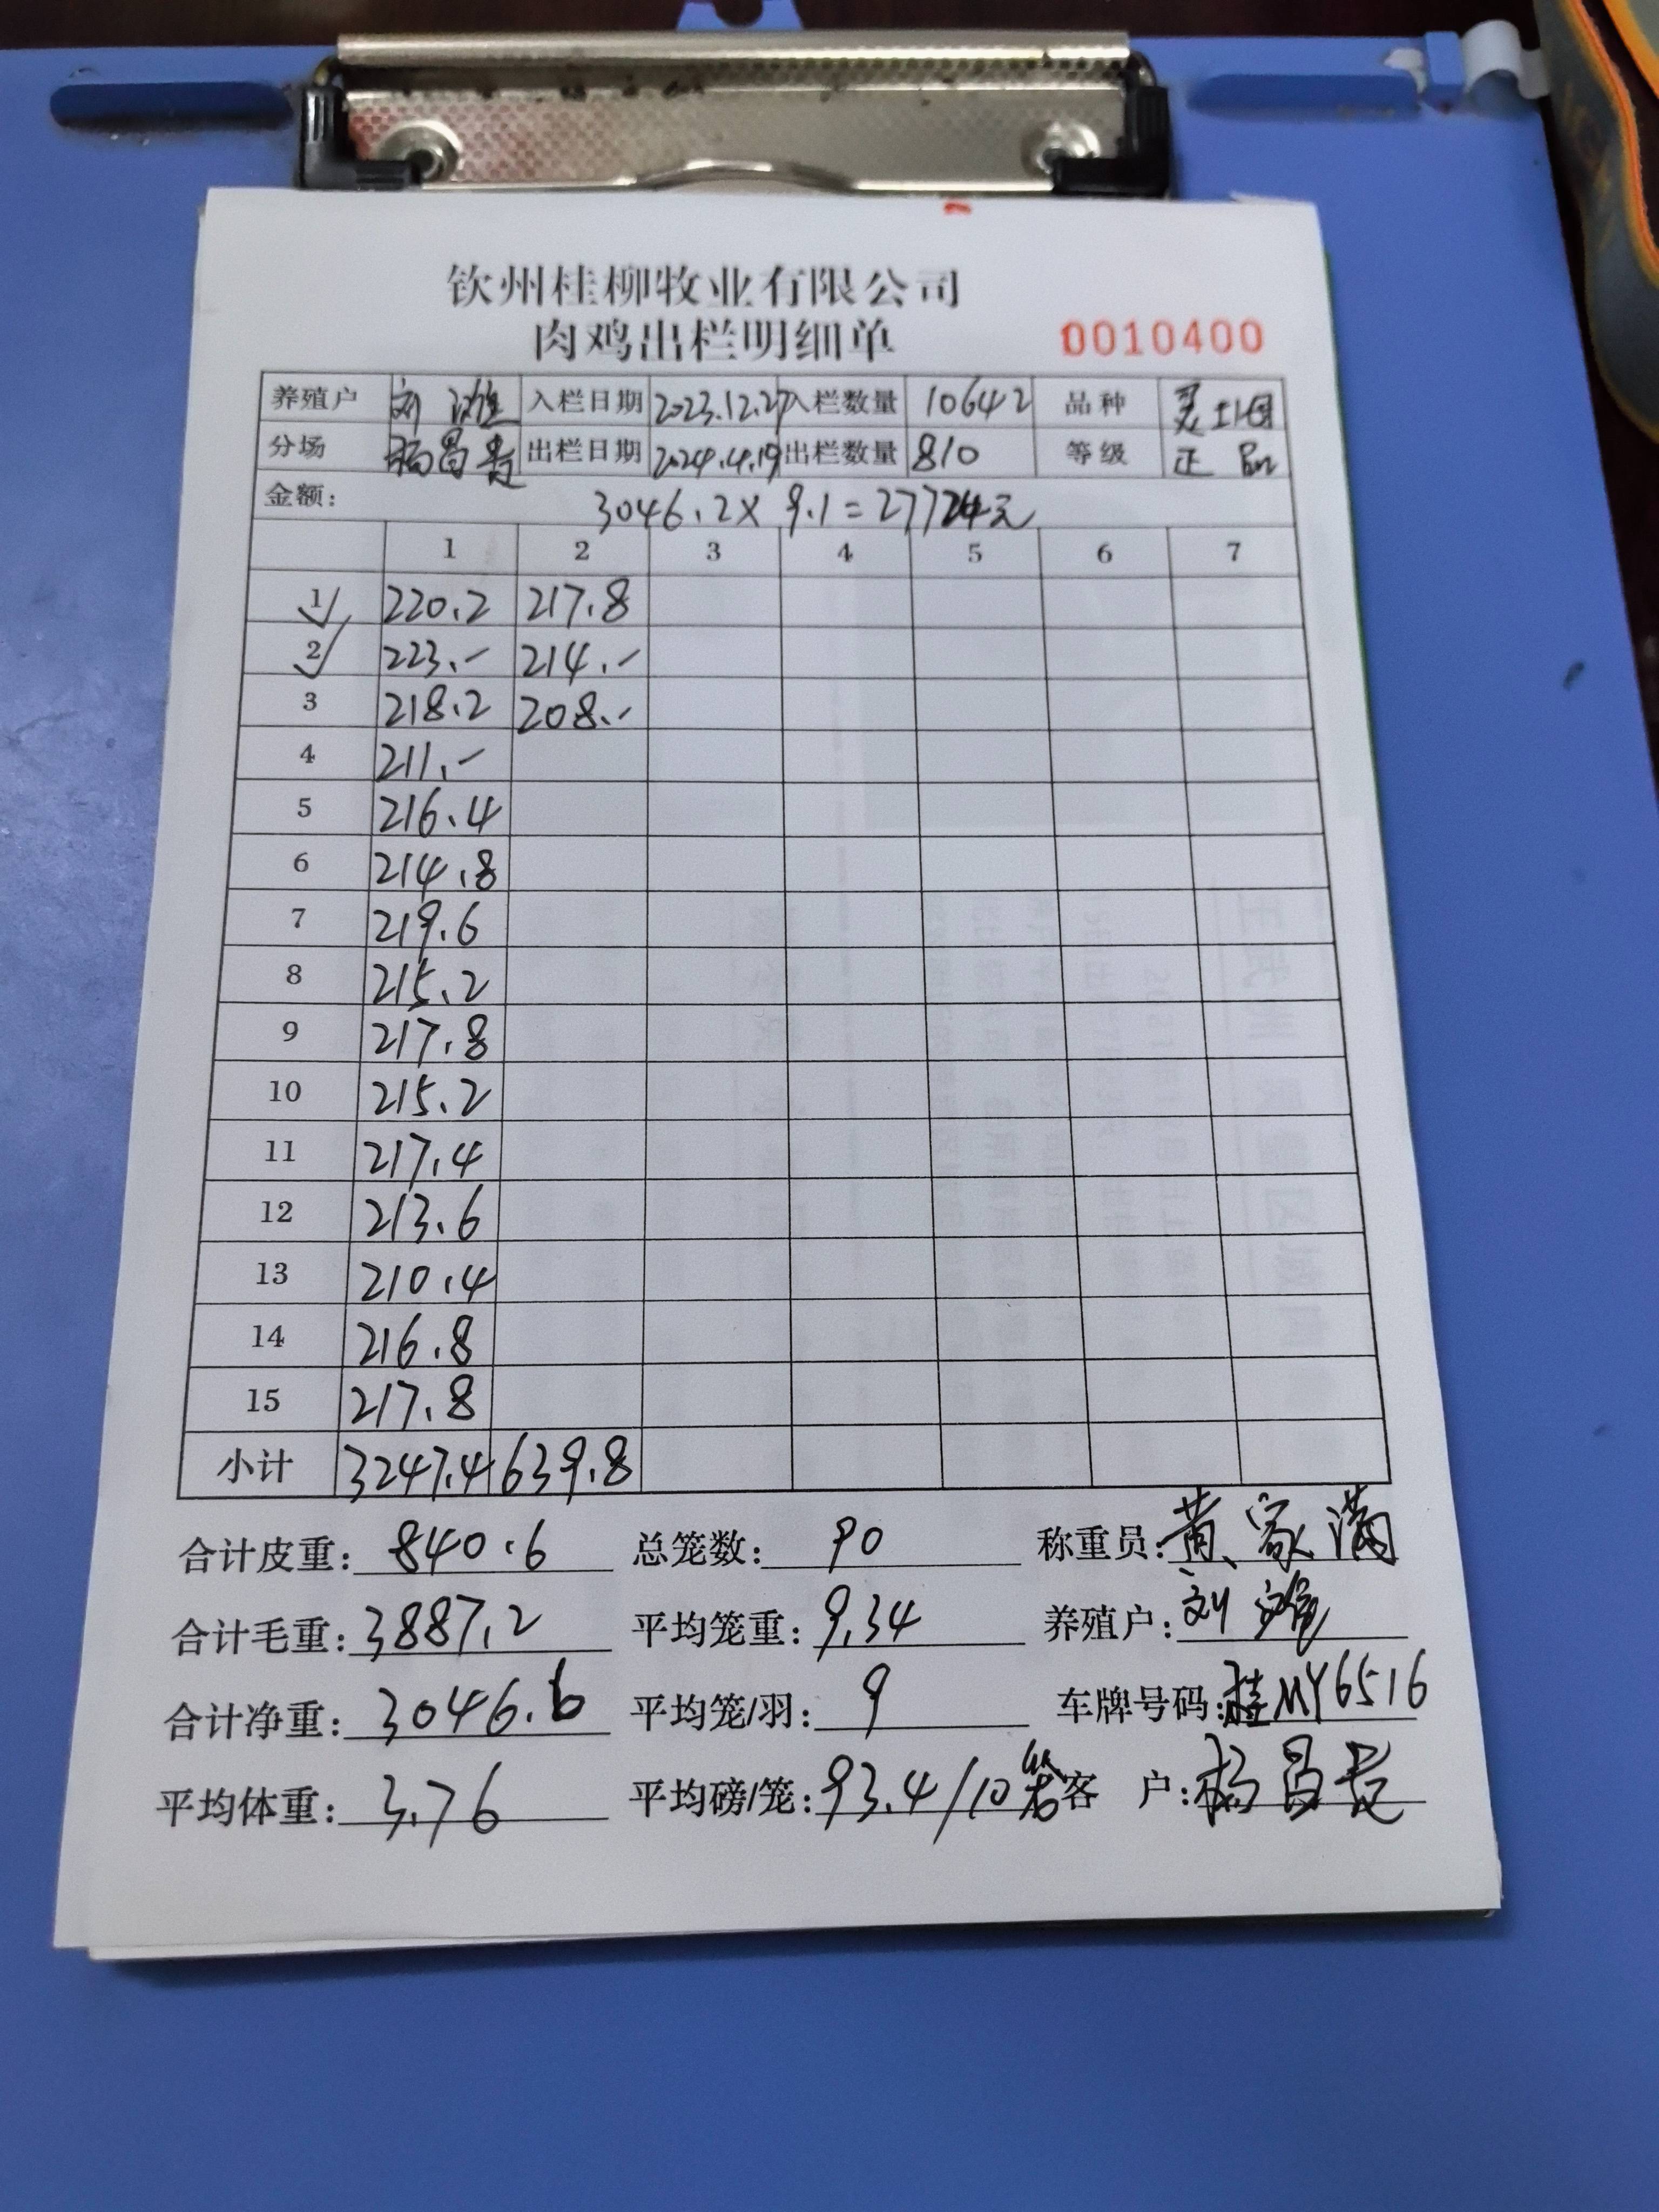 钦州桂柳牧业有限公司
肉鸡出栏明细单 0010400
养殖户 刘 入栏日期 2023.12.27 入栏数量 10642 品种 灵土
分场 杨昌贵 出栏日期 2024.4.19 出栏数量 810 等级 正品
金额: 3046.2×9.1=27724元
1 2 3 4 5 6 7
1 220.2 217.8
2 223.- 214.-
3 218.2 208.-
4 211.-
5 216.4
6 214.8
7 219.6
8 215.2
9 217.8
10 215.2
11 217.4
12 213.6
13 210.4
14 216.8
15 217.8
小计 3247.4 639.8
合计皮重: 840.6 总笼数: 90 称重员: 黄家满
合计毛重: 3887.2 平均笼重: 9.34 养殖户: 刘
合计净重: 3046.6 平均笼/羽: 9 车牌号码: 桂MY6516
平均体重: 3.76 平均磅/笼: 93.4/10笼 客 户: 杨昌贵